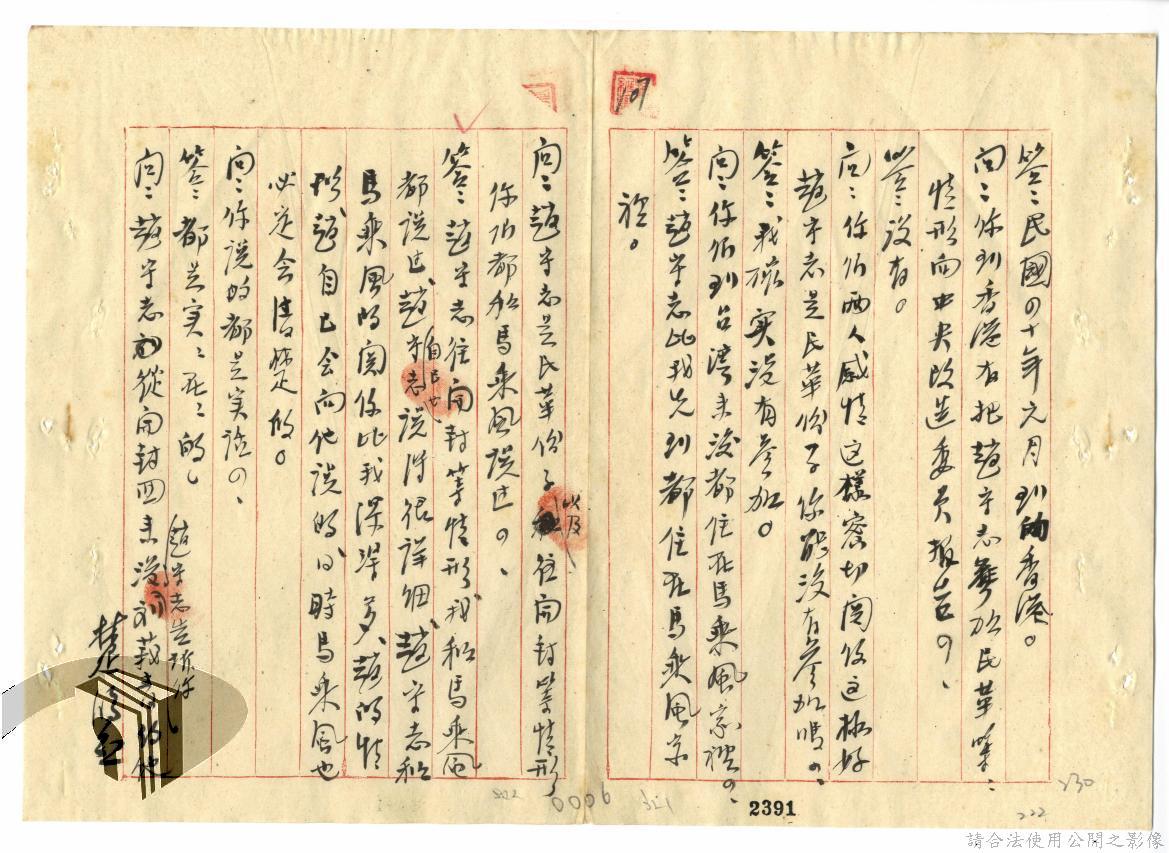 107
答：民國四十年元月到的香港。
問：你到香港有把趙守志參加民革等
情形向中央改造委員報告？
答：沒有。
問：你們兩人感情這樣密切關係這樣好
趙守志是民革份子你能沒有參加嗎？
答：我確實沒有參加。
問：你們到台灣來後都住在馬乘風家裡？
答：趙守志比我先到都住在馬乘風家
裡。
問：趙守志是民革份子以及往開封等情形
你們都和馬乘風說过？
答：趙守志往開封等情形我和馬乘風
都說过，趙守志自己也說得很詳細，趙守志和
馬乘風的關係比我深得多，趙的情
形，趙自己会向他說的，同時馬乘風也
必定会清楚的。
問：你說的都是实話？
答：都是实实在在的。
問：趙守志從開封回來後趙守志告訴你
0006
2391
230
222
請合法使用公開之影像